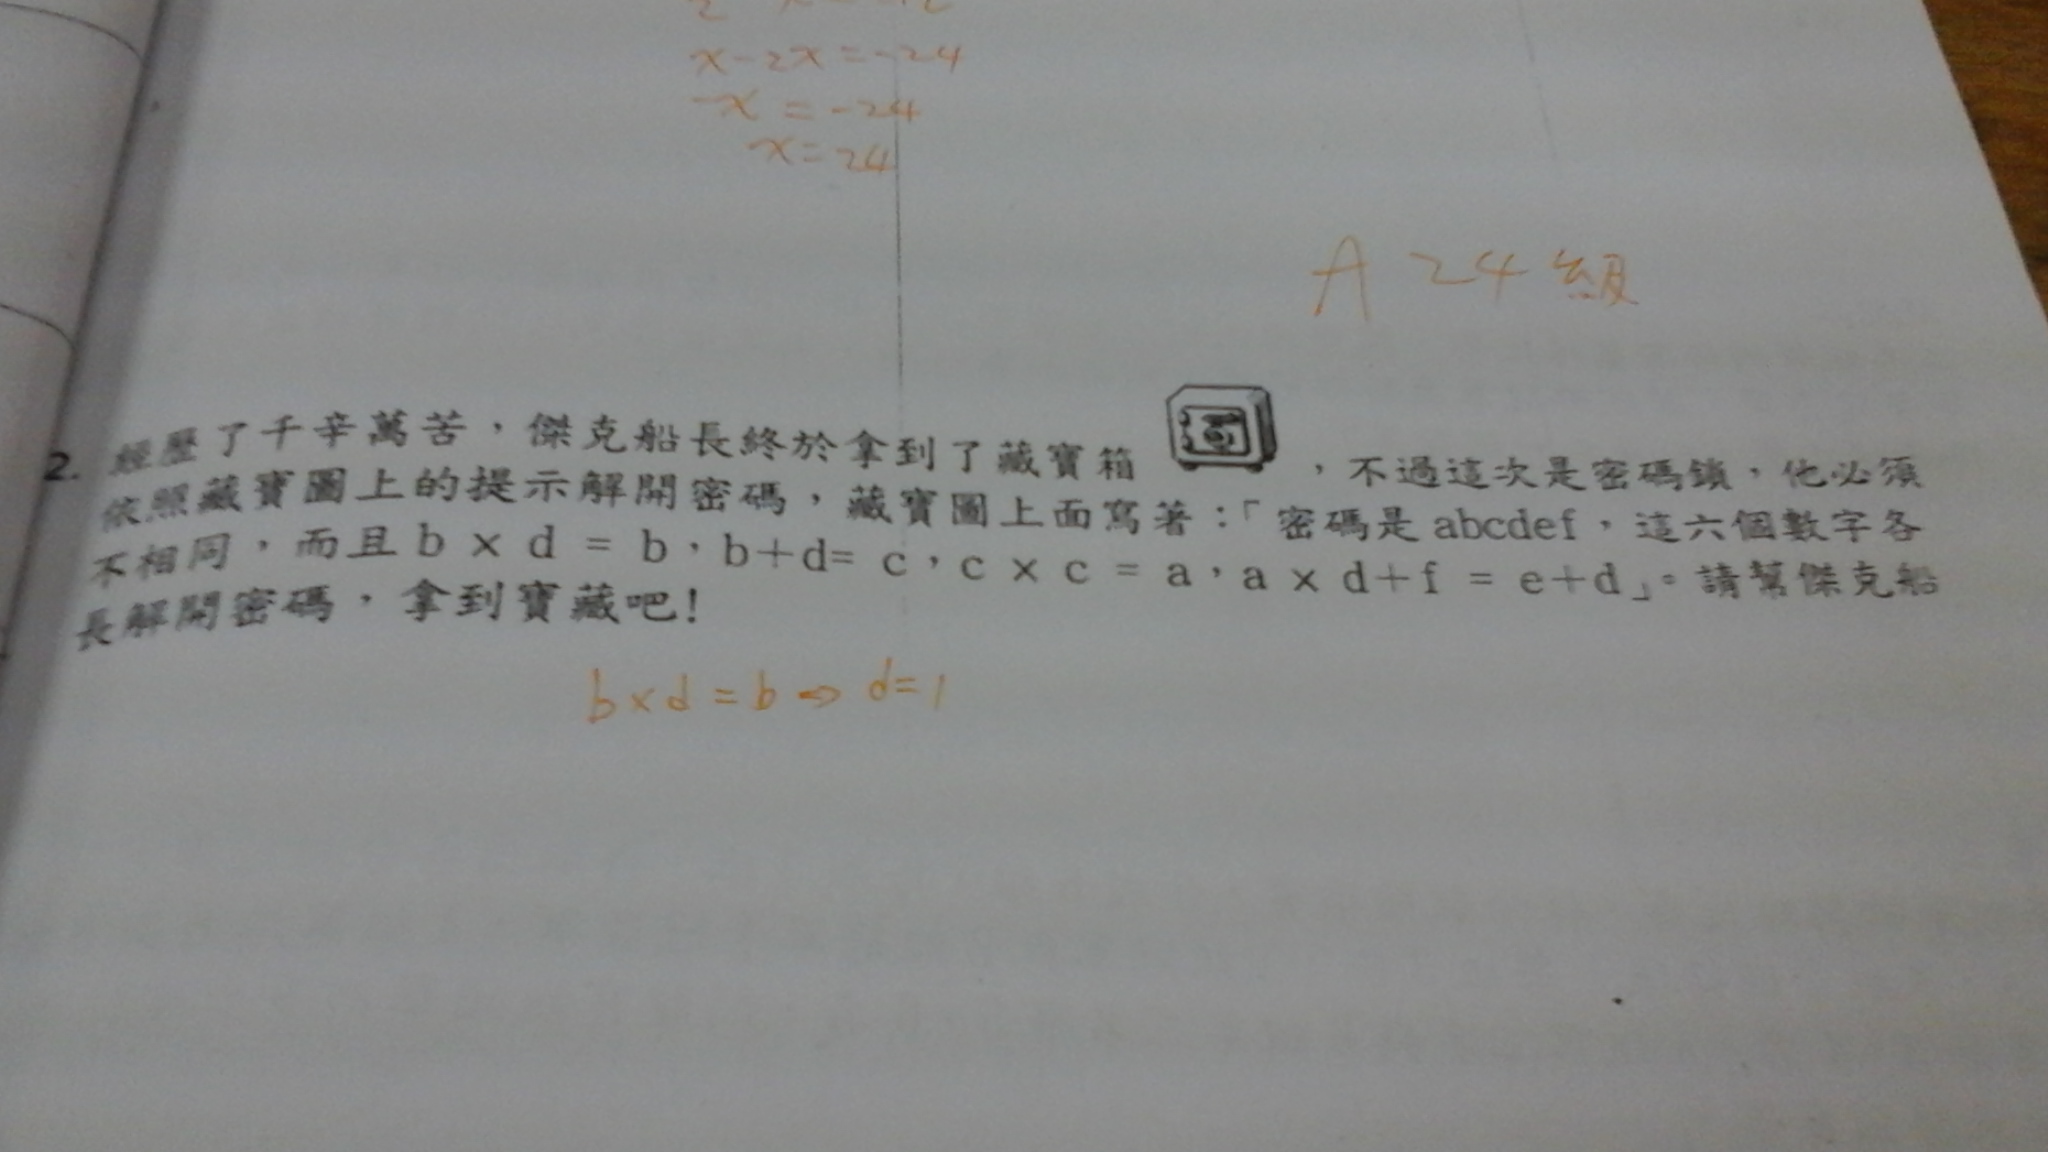 x-2x=-24
-x=-24
x=24
A 24級
2. 經歷了千辛萬苦，傑克船長終於拿到了藏寶箱，不過這次是密碼鎖，他必須
依照藏寶圖上的提示解開密碼，藏寶圖上面寫著：「密碼是abcdef，這六個數字各
不相同，而且b×d=b，b+d=c，c×c=a，a×d+f=e+d」。請幫傑克船
長解開密碼，拿到寶藏吧！
b×d=b⇒d=1